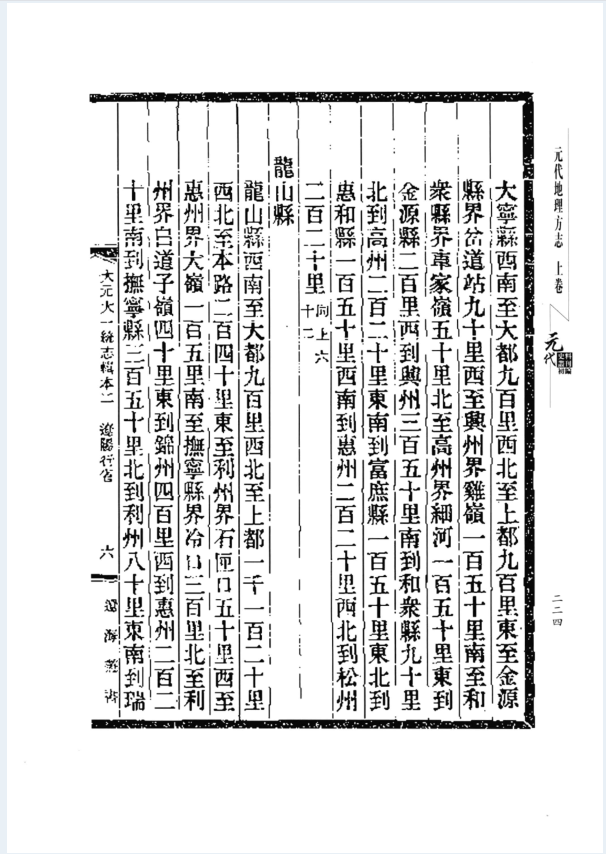 元代地理方志 上卷
元代
二二四
大寧縣西南至大都九百里西北至上都九百里東至金源
縣界岔道站九十里西至興州界雞嶺一百五十里南至和
衆縣界車家嶺五十里北至高州界細河一百五十里東到
金源縣二百里西到興州三百五十里南到和衆縣九十里
北到高州二百二十里東南到富庶縣一百五十里東北到
惠和縣一百五十里西南到惠州二百二十里西北到松州
二百二十里同上六十二
龍山縣
龍山縣西南至大都九百里西北至上都一千一百二十里
西北至本路二百四十里東至利州界石匣口五十里西至
惠州界大嶺一百五里南至撫寧縣界冷口三百里北至利
州界白道子嶺四十里東到錦州四百里西到惠州二百二
十里南到撫寧縣三百五十里北到利州八十里東南到瑞
大元大一統志輯本二 遼陽行省 六 遼海叢書